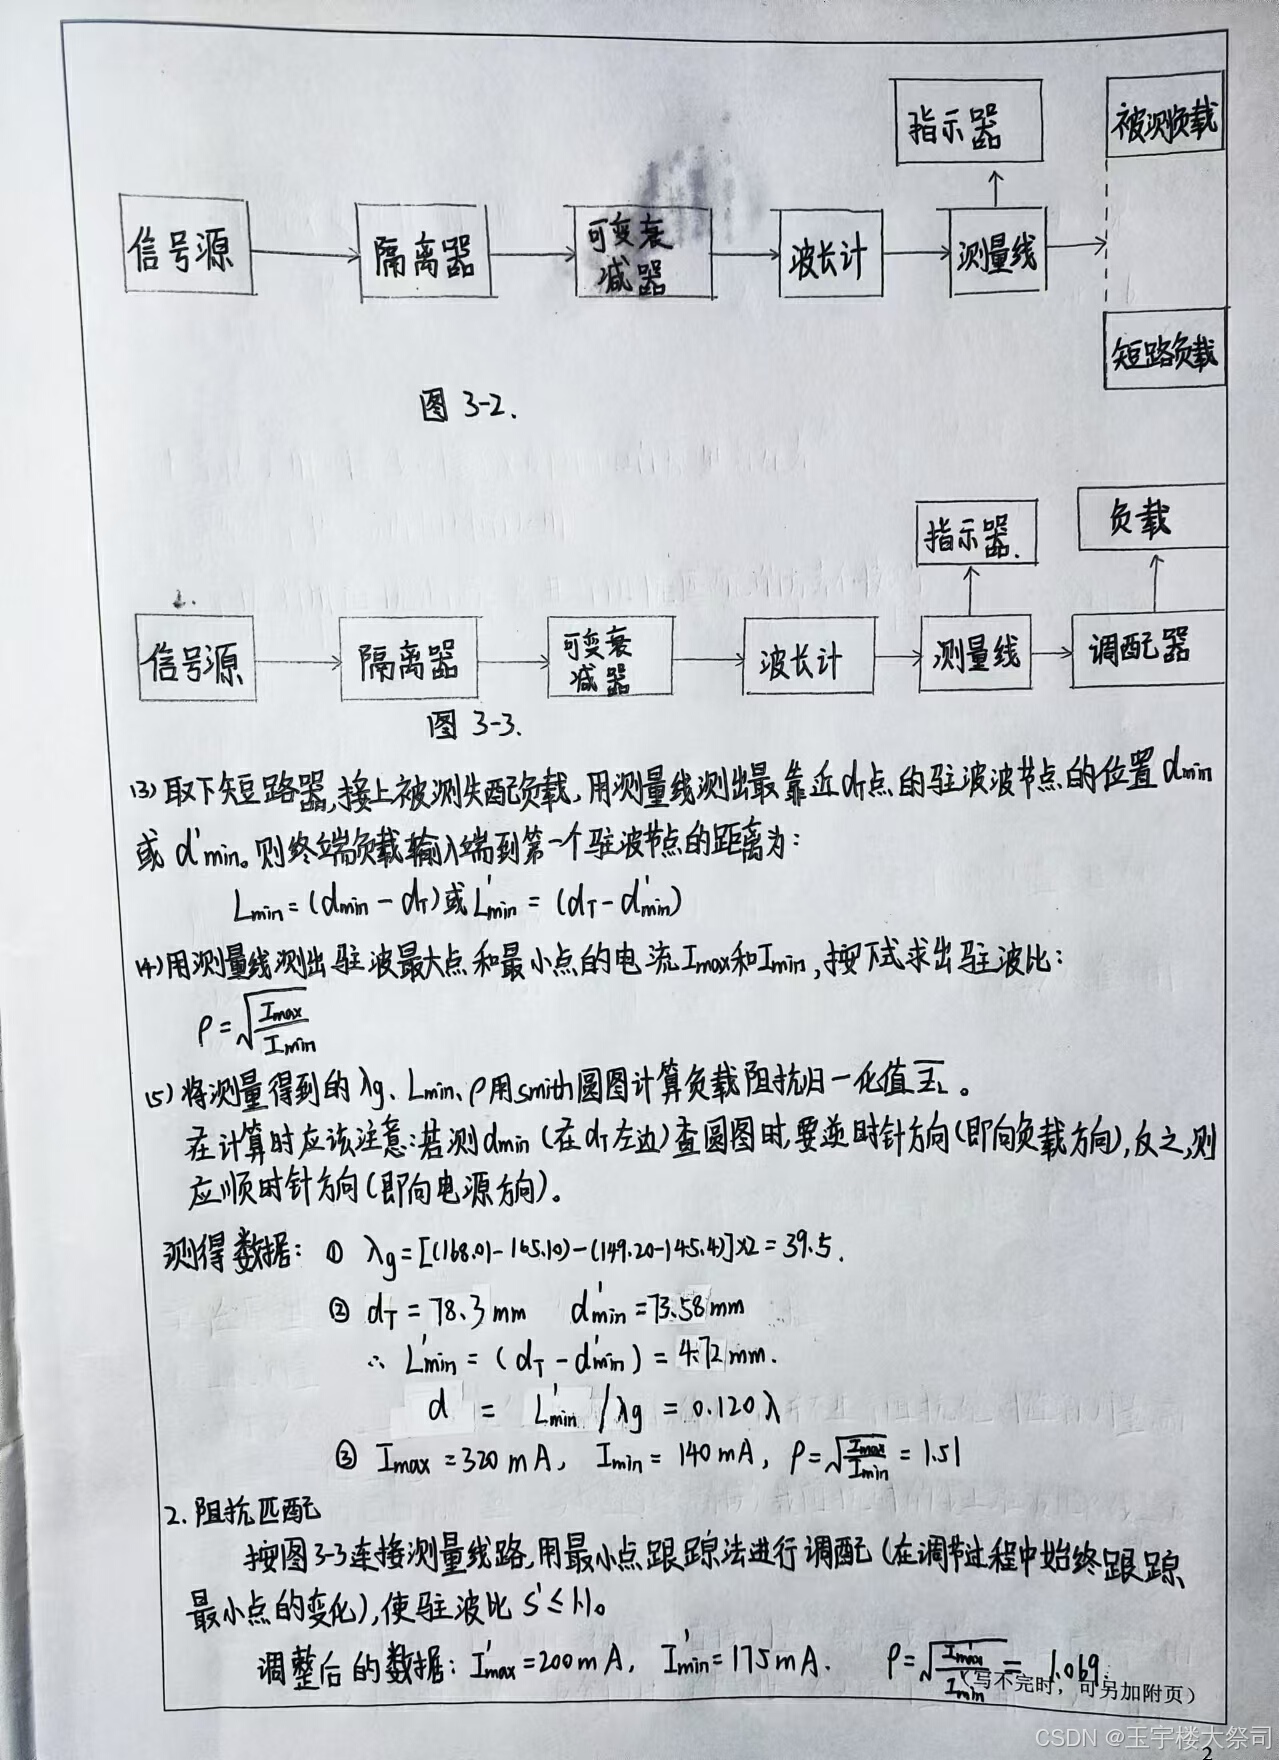 指示器
被测负载
信号源
隔离器
可变衰
减器
波长计
测量线
短路负载
图 3-2.
指示器.
负载
信号源
隔离器
可变衰
减器
波长计
测量线
调配器
图 3-3.
(3) 取下短路器,接上被测失配负载,用测量线测出最靠近dT点的驻波波节点的位置dmin
或 d'min。则终端负载输入端到第一个驻波节点的距离为:
Lmin = (dmin - dT)或L'min = (dT - d'min)
(4)用测量线测出驻波最大点和最小点的电流Imax和Imin,按下式求出驻波比:
ρ=√(Imax/Imin)
(5) 将测量得到的λg、Lmin、ρ用smith圆图计算负载阻抗归一化值Z̅L。
在计算时应该注意:若测dmin(在dT左边)查圆图时,要逆时针方向(即向负载方向),反之,则
应顺时针方向(即向电源方向)。
测得数据: ① λg=[(168.01-165.10)-(149.20-145.4)]×2=39.5.
② dT = 78.3 mm d'min=73.58mm
∴ L'min = (dT - d'min) = 4.72 mm.
d = L'min /λg = 0.120λ
③ Imax = 320 mA, Imin = 140 mA, ρ=√(Imax/Imin) = 1.51
2. 阻抗匹配
按图3-3连接测量线路,用最小点跟踪法进行调配(在调节过程中始终跟踪
最小点的变化),使驻波比 S'≤1.1。
调整后的数据: I'max=200mA, I'min=175mA. ρ=√(I'max/Imin) = 1.069.
(写不完时,可另加附页)
2
CSDN @玉宇楼大祭司